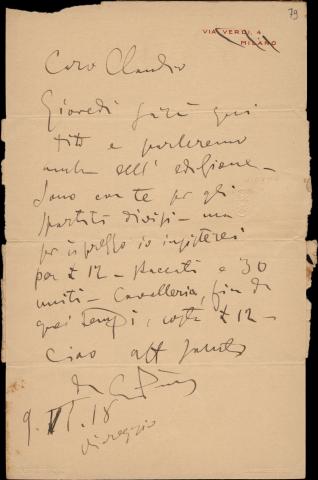 79
VIA VERDI, 4
MILANO
Caro Claudio
Giovedì sarà qui
Tito e parleremo
anche dell' edizione –
Sono con te per gli
spartiti divisi – ma
per il prezzo io insisterei
per £ 12 – staccati e 30
uniti – Cavalleria, fin da
quei tempi, costa £ 12 –
Ciao aff saluti
da
9. VI. 18
Viareggio